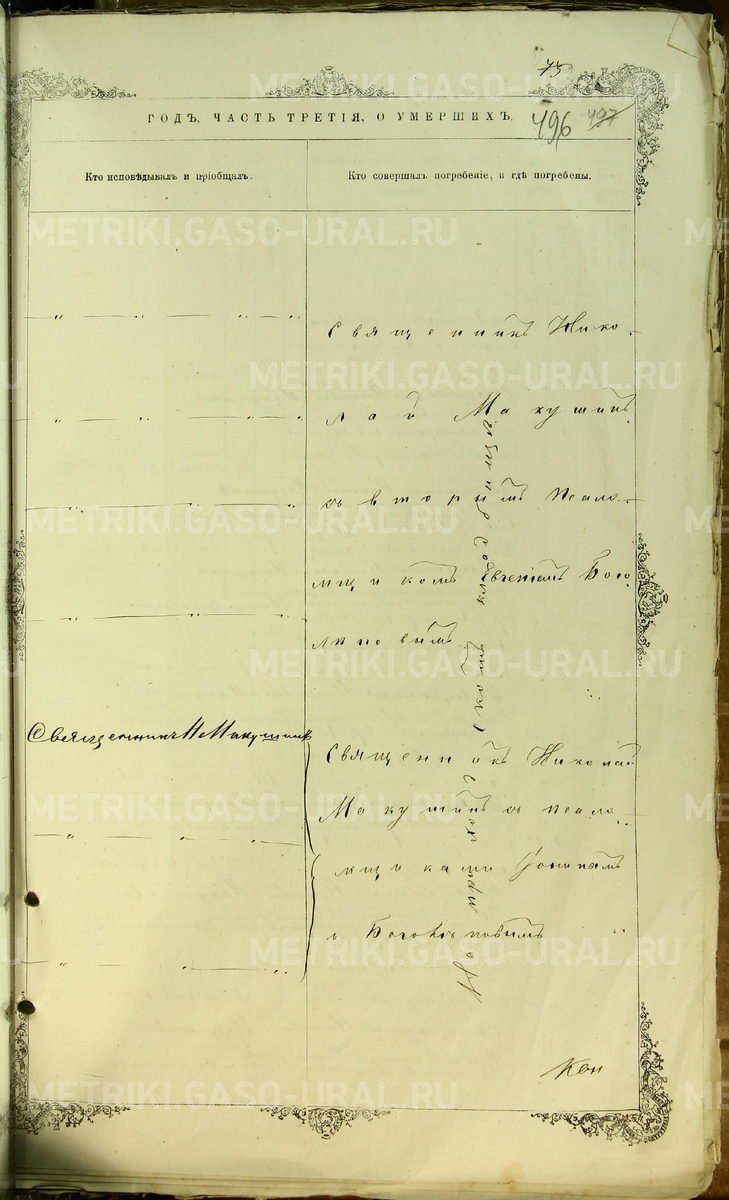 75
ГОДЪ, ЧАСТЬ ТРЕТІЯ, О УМЕРШИХЪ.
496 497
Кто исповѣдывалъ и пріобщалъ.
Кто совершалъ погребеніе, и гдѣ погребены.
Священникъ Нико
лай Макушинъ
съ вторымъ псало
мщикомъ Евгеніемъ Бого
лѣповымъ
Священникъ Н Макушинъ
Священникъ Николай
Макушинъ съ псало
мщиками
и Боголѣповымъ
На приходскомъ кладбищѣ
METRIKI.GASO-URAL.RU